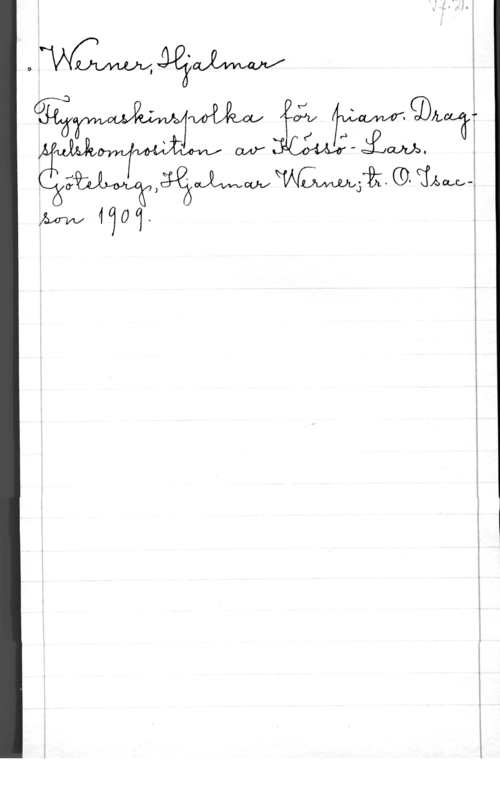 Werner, Hjalmar
Flygmaskinspolka för piano. Drag-
spelskomposition av Kössö-Lars.
Göteborg, Hjalmar Werner; tr. O. Isac-
son 1909.